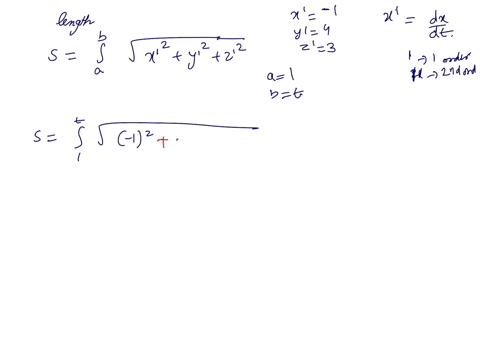 length
S = ∫ₐᵇ √(x'² + y'² + z'²)
x' = -1
y' = 4
z' = 3
a = 1
b = t
x' = dx/dt.
' → 1 order
'' → 2nd ord
S = ∫₁ᵗ √((-1)² +